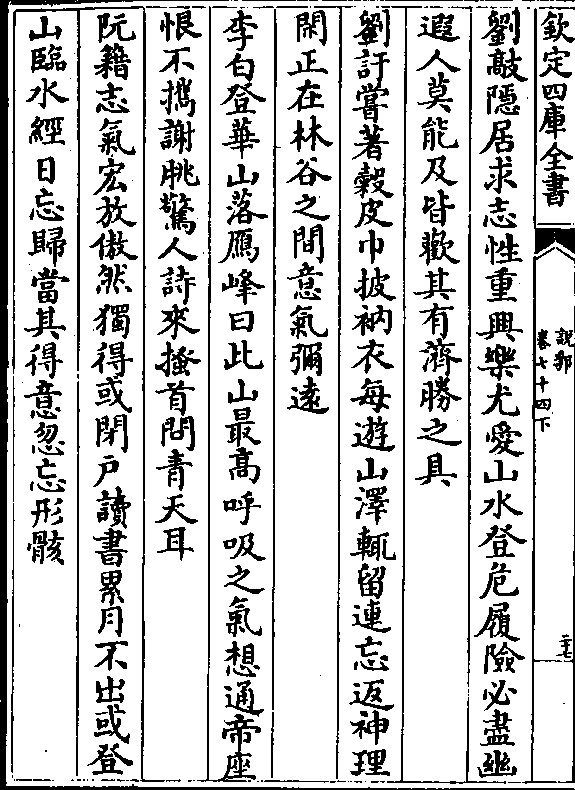 欽定四庫全書
說郛
卷七十四下
二七
劉歊隱居求志性重興樂尤愛山水登危履險必盡幽
遐人莫能及皆歡其有濟勝之具
劉訏嘗著穀皮巾披衲衣每遊山澤輒留連忘返神理
閑正在林谷之間意氣彌遠
李白登華山落鴈峰曰此山最高呼吸之氣想通帝座
恨不攜謝朓驚人詩來搔首問青天耳
阮籍志氣宏放傲然獨得或閉户讀書累月不出或登
山臨水經日忘歸當其得意忽忘形骸